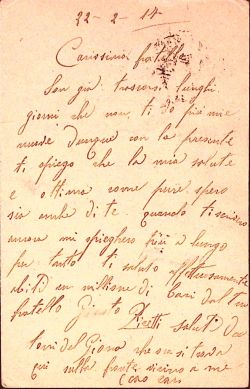 22-2-14
Carissimo fratello
Son già trascorsi lunghi
giorni che non ti do più mie
nuove dunque con la presente
ti spiego che la mia salute
è ottima come pure spero
sia anche di te. quando ti scrivero
ancora mi spiegherò più a lungo
per tanto ti saluto affettuosamente
un millione di baci dal tuo
fratello Giusto
saluti da
che ora si trova
qui sulla fronte vicino a me
ciao ciao